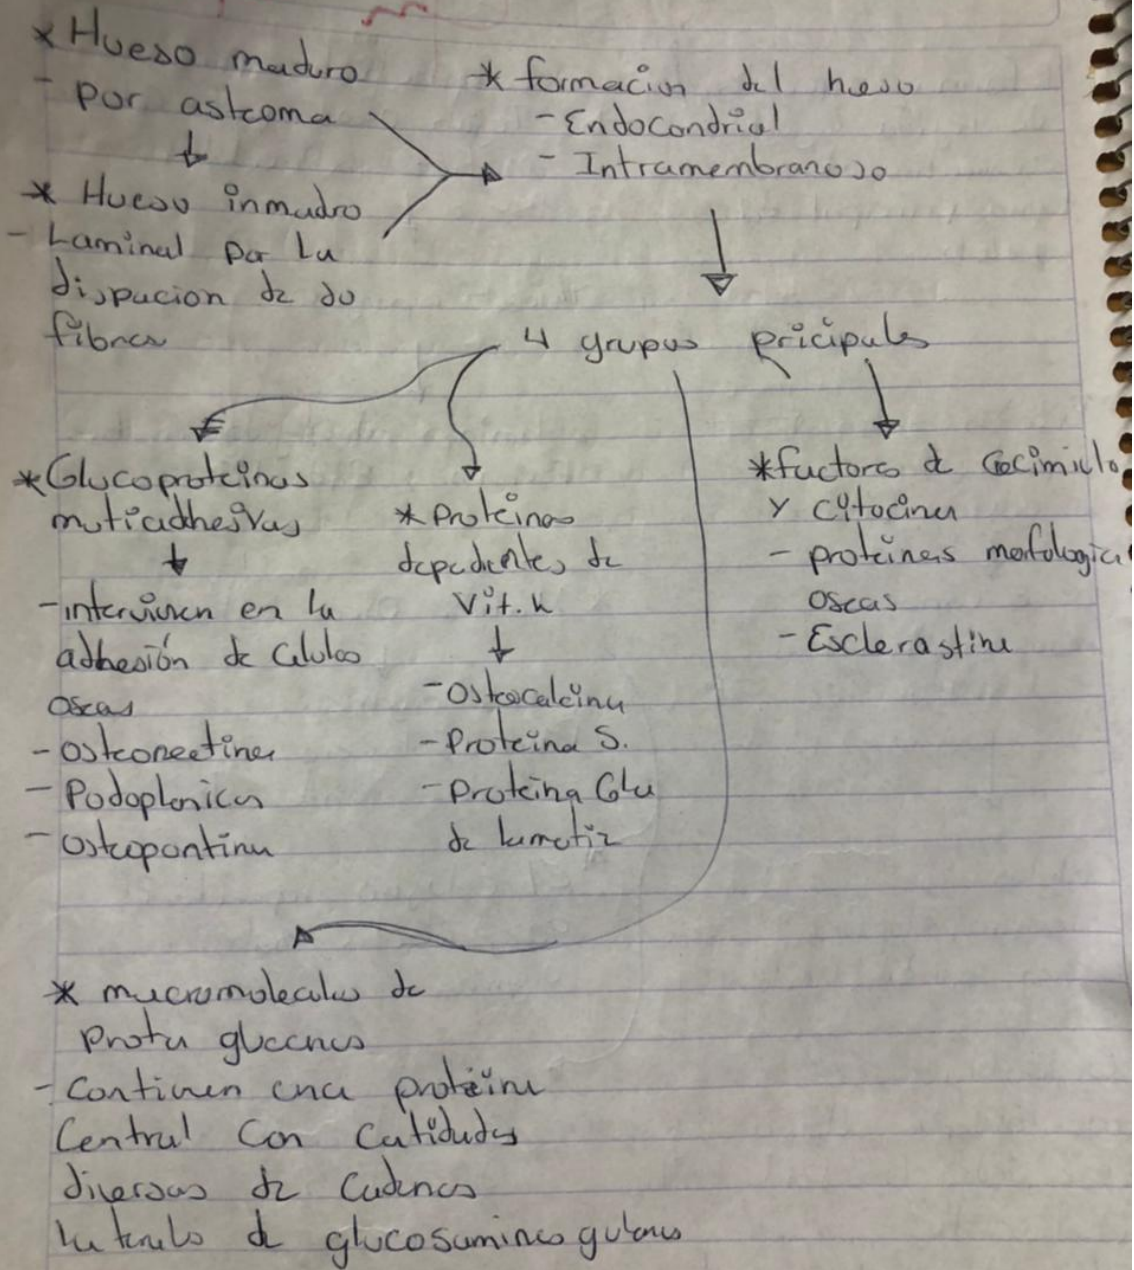 * Hueso maduro
- por asteoma
* Hueso inmadro
- Laminal por La
dispucion de so
fibras
* formacion del hueso
- Endocondrial
- Intramembranoso
4 grupos pricipales
* Glucoproteinas
muticidhesivas
- intervienen en la
adhesión de Celulas
oseas
- osteonectina
- Podoplanica
- osteopontina
* Proteinas
depedientes de
Vit. k
- osteocalcina
- Proteina S.
- proteina Glu
de lamatiz
* factores de Cecimieto
y citocinas
- proteinas morfologica
oseas
- Esclerastina
* macromoleculas de
Proteu glucanos
- Contienen una proteina
Central Con Catidades
diversas de Cadenas
laterales de glucosaminos gulanos